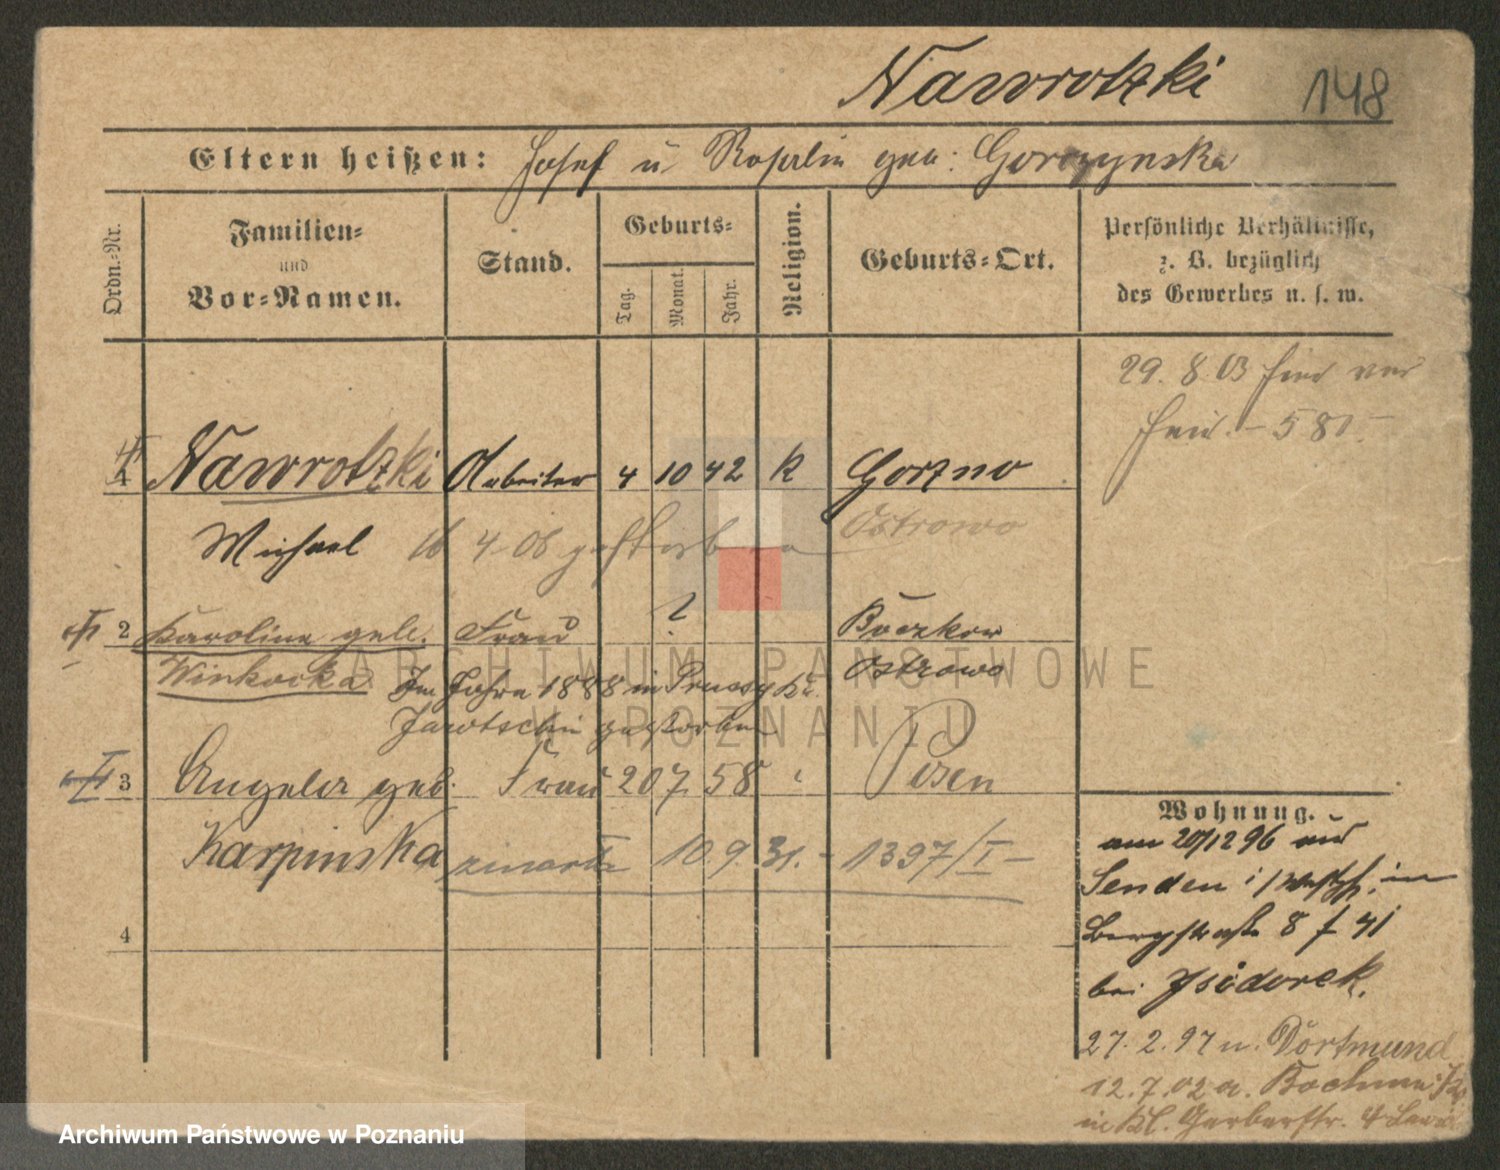 Nawrotzki 148
Eltern heißen: Josef u Rosalie geb. Gorczynska
Ordn.-Nr.
Familien-
und
Vor-Namen.
Stand.
Geburts-
Tag.
Monat.
Jahr.
Religion.
Geburts-Ort.
Persönliche Verhältnisse,
z. B. bezüglich
des Gewerbes u. s. w.
29. 8 03
Nawrotzki Arbeiter 4 10 42 k Gorzno
Michael 16 4 06 gestorben Ostrowo
2 Karoline geb. Frau ? Boczkow
Winkocka Im Jahre 1888 in Ostrowo
gestorben
3 Angela geb. Frau 20 7 58 Posen
Karpinska zmarła 10 9. 31. - 1397/I -
4
Wohnung.
am 20/12 96
Senden i/Westf. in
Bergstraße 8 f 41
bei Isidorek.
27. 2. 97 n. Dortmund
12. 7. 02 a.
in Kl. Gerberstr. 4
ARCHIWUM PAŃSTWOWE
W POZNANIU
Archiwum Państwowe w Poznaniu